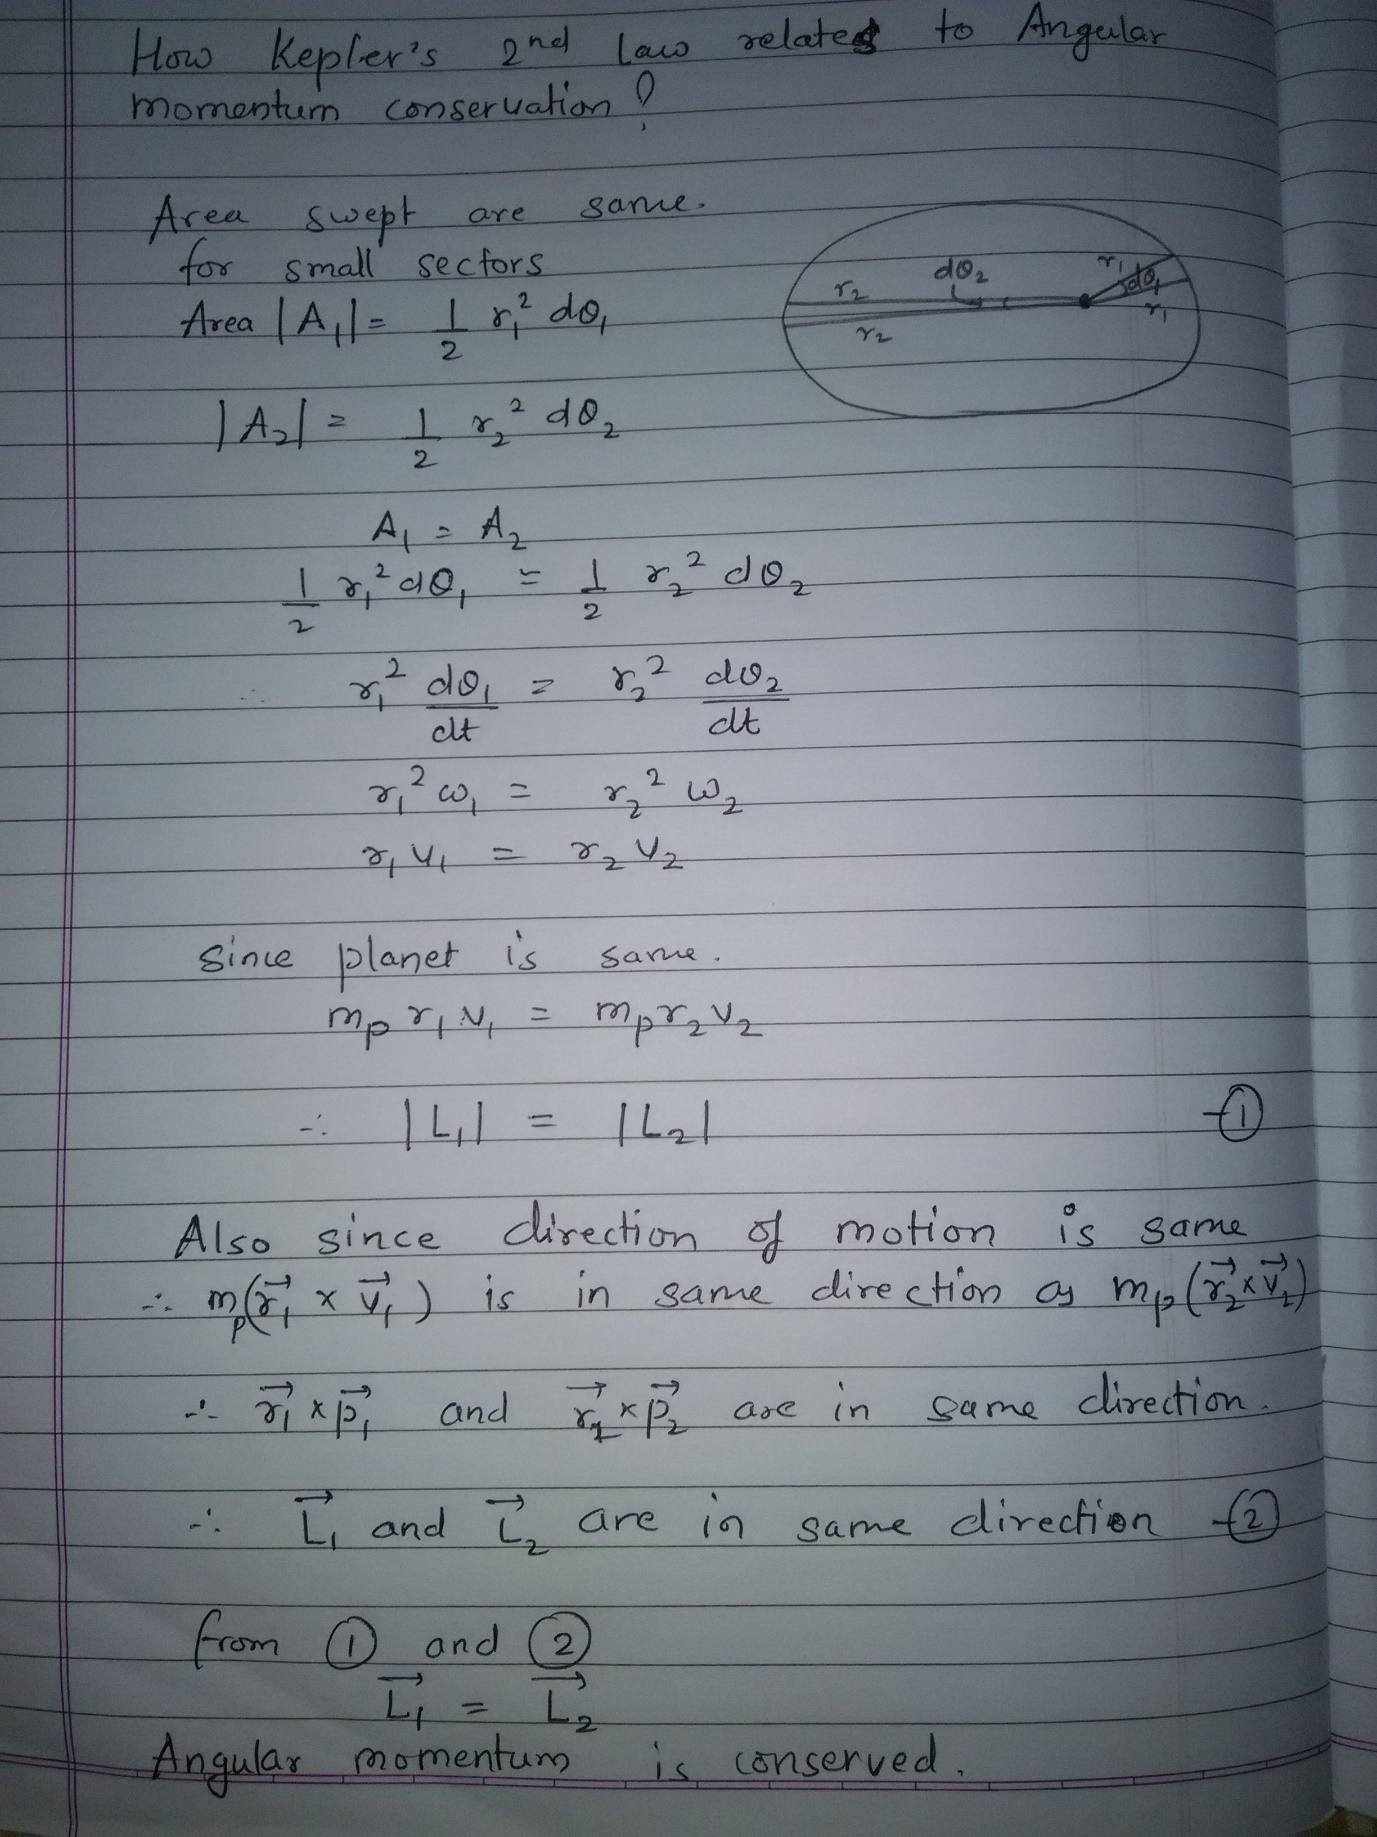 How Kepler's 2nd law relates to Angular
momentum conservation ?
Area swept are same.
for small sectors
Area |A₁| = 1/2 r₁² dθ₁
|A₂| = 1/2 r₂² dθ₂
r₂ dθ₂ r₁ dθ₁
r₂ r₁
A₁ = A₂
1/2 r₁² dθ₁ = 1/2 r₂² dθ₂
∴ r₁² dθ₁/dt = r₂² dθ₂/dt
r₁² ω₁ = r₂² ω₂
r₁ v₁ = r₂ v₂
Since planet is same.
mₚ r₁ v₁ = mₚ r₂ v₂
∴ |L₁| = |L₂| —①
Also since direction of motion is same
∴ mₚ(r⃗₁ × v⃗₁) is in same direction as mₚ(r⃗₂ × v⃗₂)
∴ r⃗₁ × p⃗₁ and r⃗₂ × p⃗₂ are in same direction.
∴ L⃗₁ and L⃗₂ are in same direction —②
from ① and ②
L⃗₁ = L⃗₂
Angular momentum is conserved.